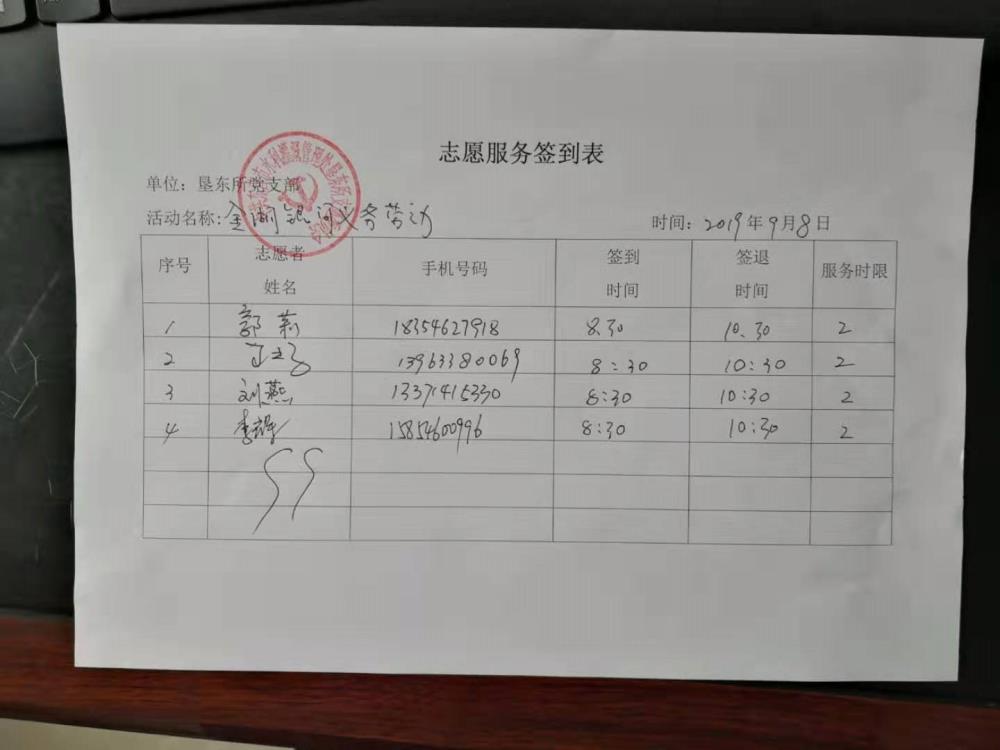 志愿服务签到表
单位：垦东所党支部
活动名称：金湖银河义务劳动 时间：2019年9月8日
序号 志愿者姓名 手机号码 签到时间 签退时间 服务时限
1 郭莉 18354627918 8.30 10.30 2
2 13963380069 8:30 10:30 2
3 刘燕 13371415330 8:30 10:30 2
4 李 15854600996 8:30 10:30 2